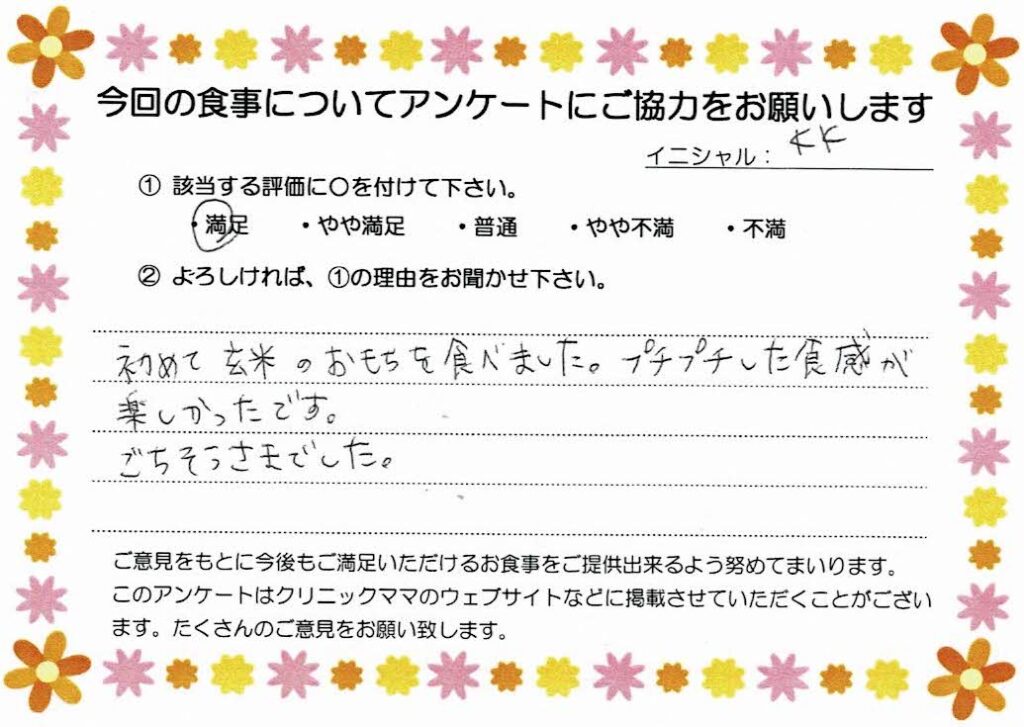 今回の食事についてアンケートにご協力をお願いします
イニシャル： KK
① 該当する評価に〇を付けて下さい。
・満足 ・やや満足 ・普通 ・やや不満 ・不満
② よろしければ、①の理由をお聞かせ下さい。
初めて玄米のおもちを食べました。プチプチした食感が
楽しかったです。
ごちそうさまでした。
ご意見をもとに今後もご満足いただけるお食事をご提供出来るよう努めてまいります。
このアンケートはクリニックママのウェブサイトなどに掲載させていただくことがござい
ます。たくさんのご意見をお願い致します。